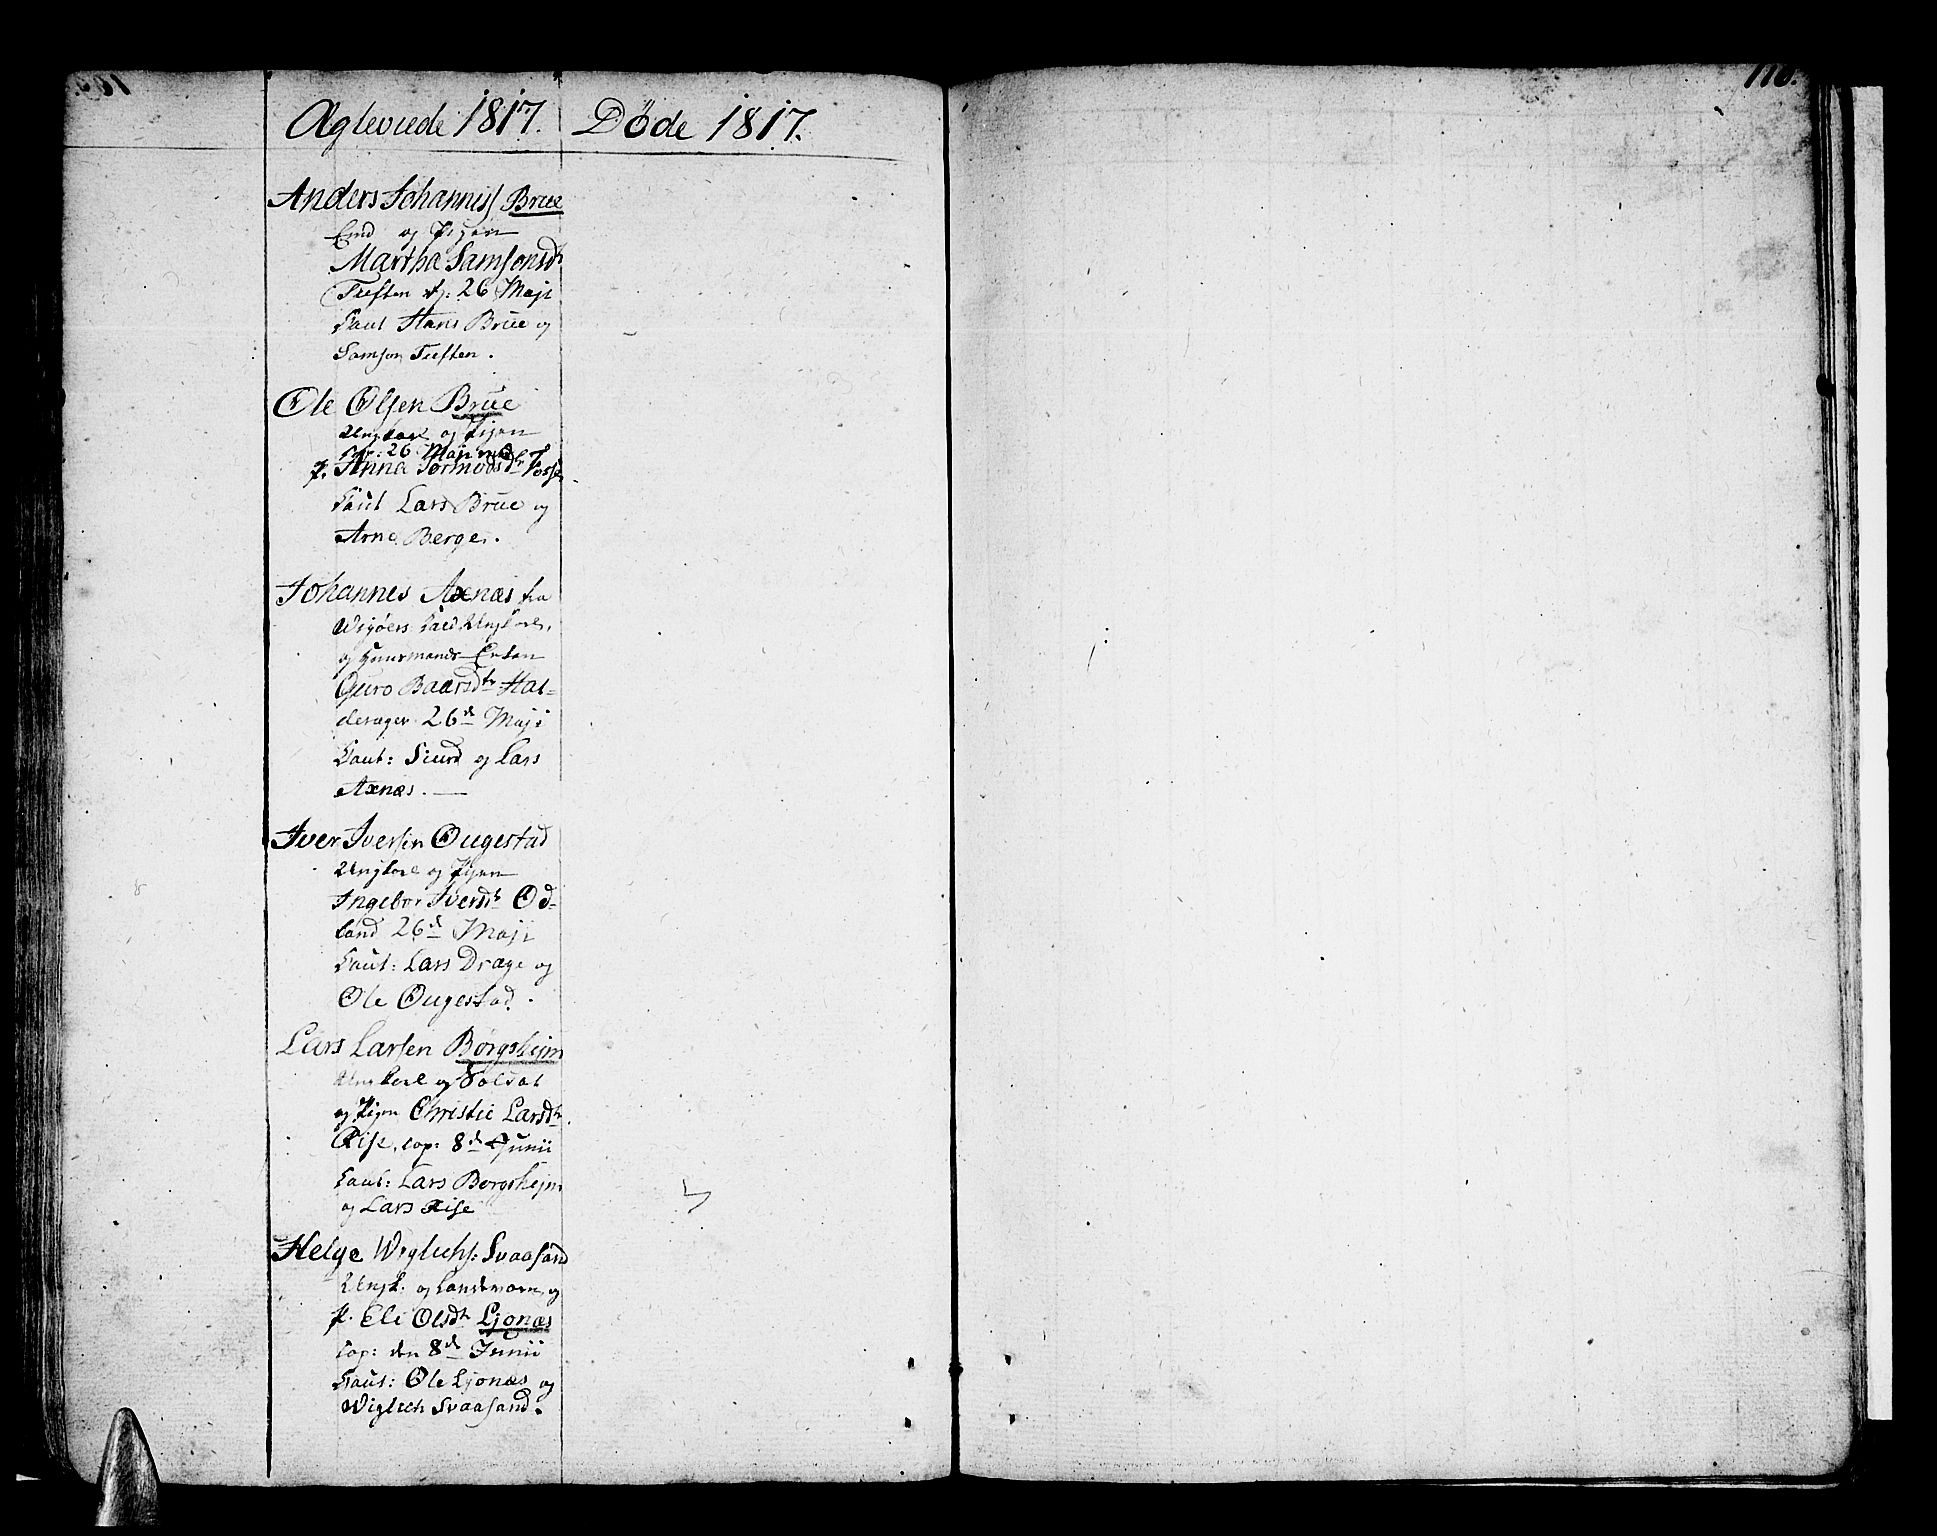 110.
Ægteviede 1817.
Døde 1817.
Anders Johannisß Brue
og Pigen
Martha Samsonsdr
Tueften 26 Maji
Caut Hans Brue og
Samson Tueften.
Ole Olsen Brue
Ungkarl og Pigen
26 Maji
p. Anna Tormodsdr Fosse
Caut Lars Brue og
Arne Berge.
Johannes Axnæs fra
Wigøers Ungkarl,
og Huusmands Enken
Guro Baarsdr Hal-
derager 26d Maji
Caut: Siurd og Lars
Axnæs.
Iver Iversen Ougestad
Ungkarl og Pigen
Ingebor Iversdr Od-
land 26d Maji
Caut: Lars Drage og
Ole Ougestad.
Lars Larsen Børgshejm
Ungkarl og Soldat
og Pigen Christie Larsdr
Rise, cop: 8d Junii
Caut: Lars Borgshejm
og Lars Rise
Helge Wiglichs: Svaasand
Ungk: og Landværn, og
p. Eli Olsdr Ljonæs
Cop: den 8d Junii
Caut: Ole Ljonæs og
Wiglich Svaasand.